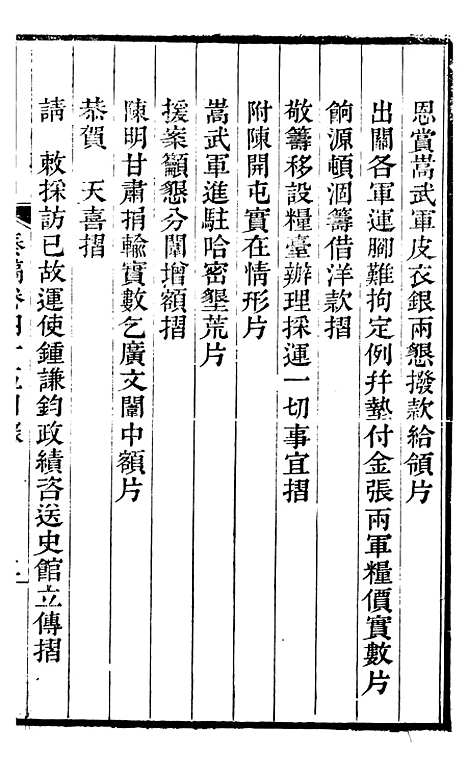 恩賞嵩武軍皮衣銀兩懇撥款給領片
出關各軍運腳難拘定例幷墊付金張兩軍糧價實數片
餉源頓涸籌借洋款摺
敬籌移設糧臺辦理採運一切事宜摺
附陳開屯實在情形片
嵩武軍進駐哈密墾荒片
援案籲懇分闈增額摺
陳明甘肅捐輸實數乞廣文闈中額片
恭賀 天喜摺
請 敕採訪已故運使鍾謙鈞政績咨送史館立傳摺